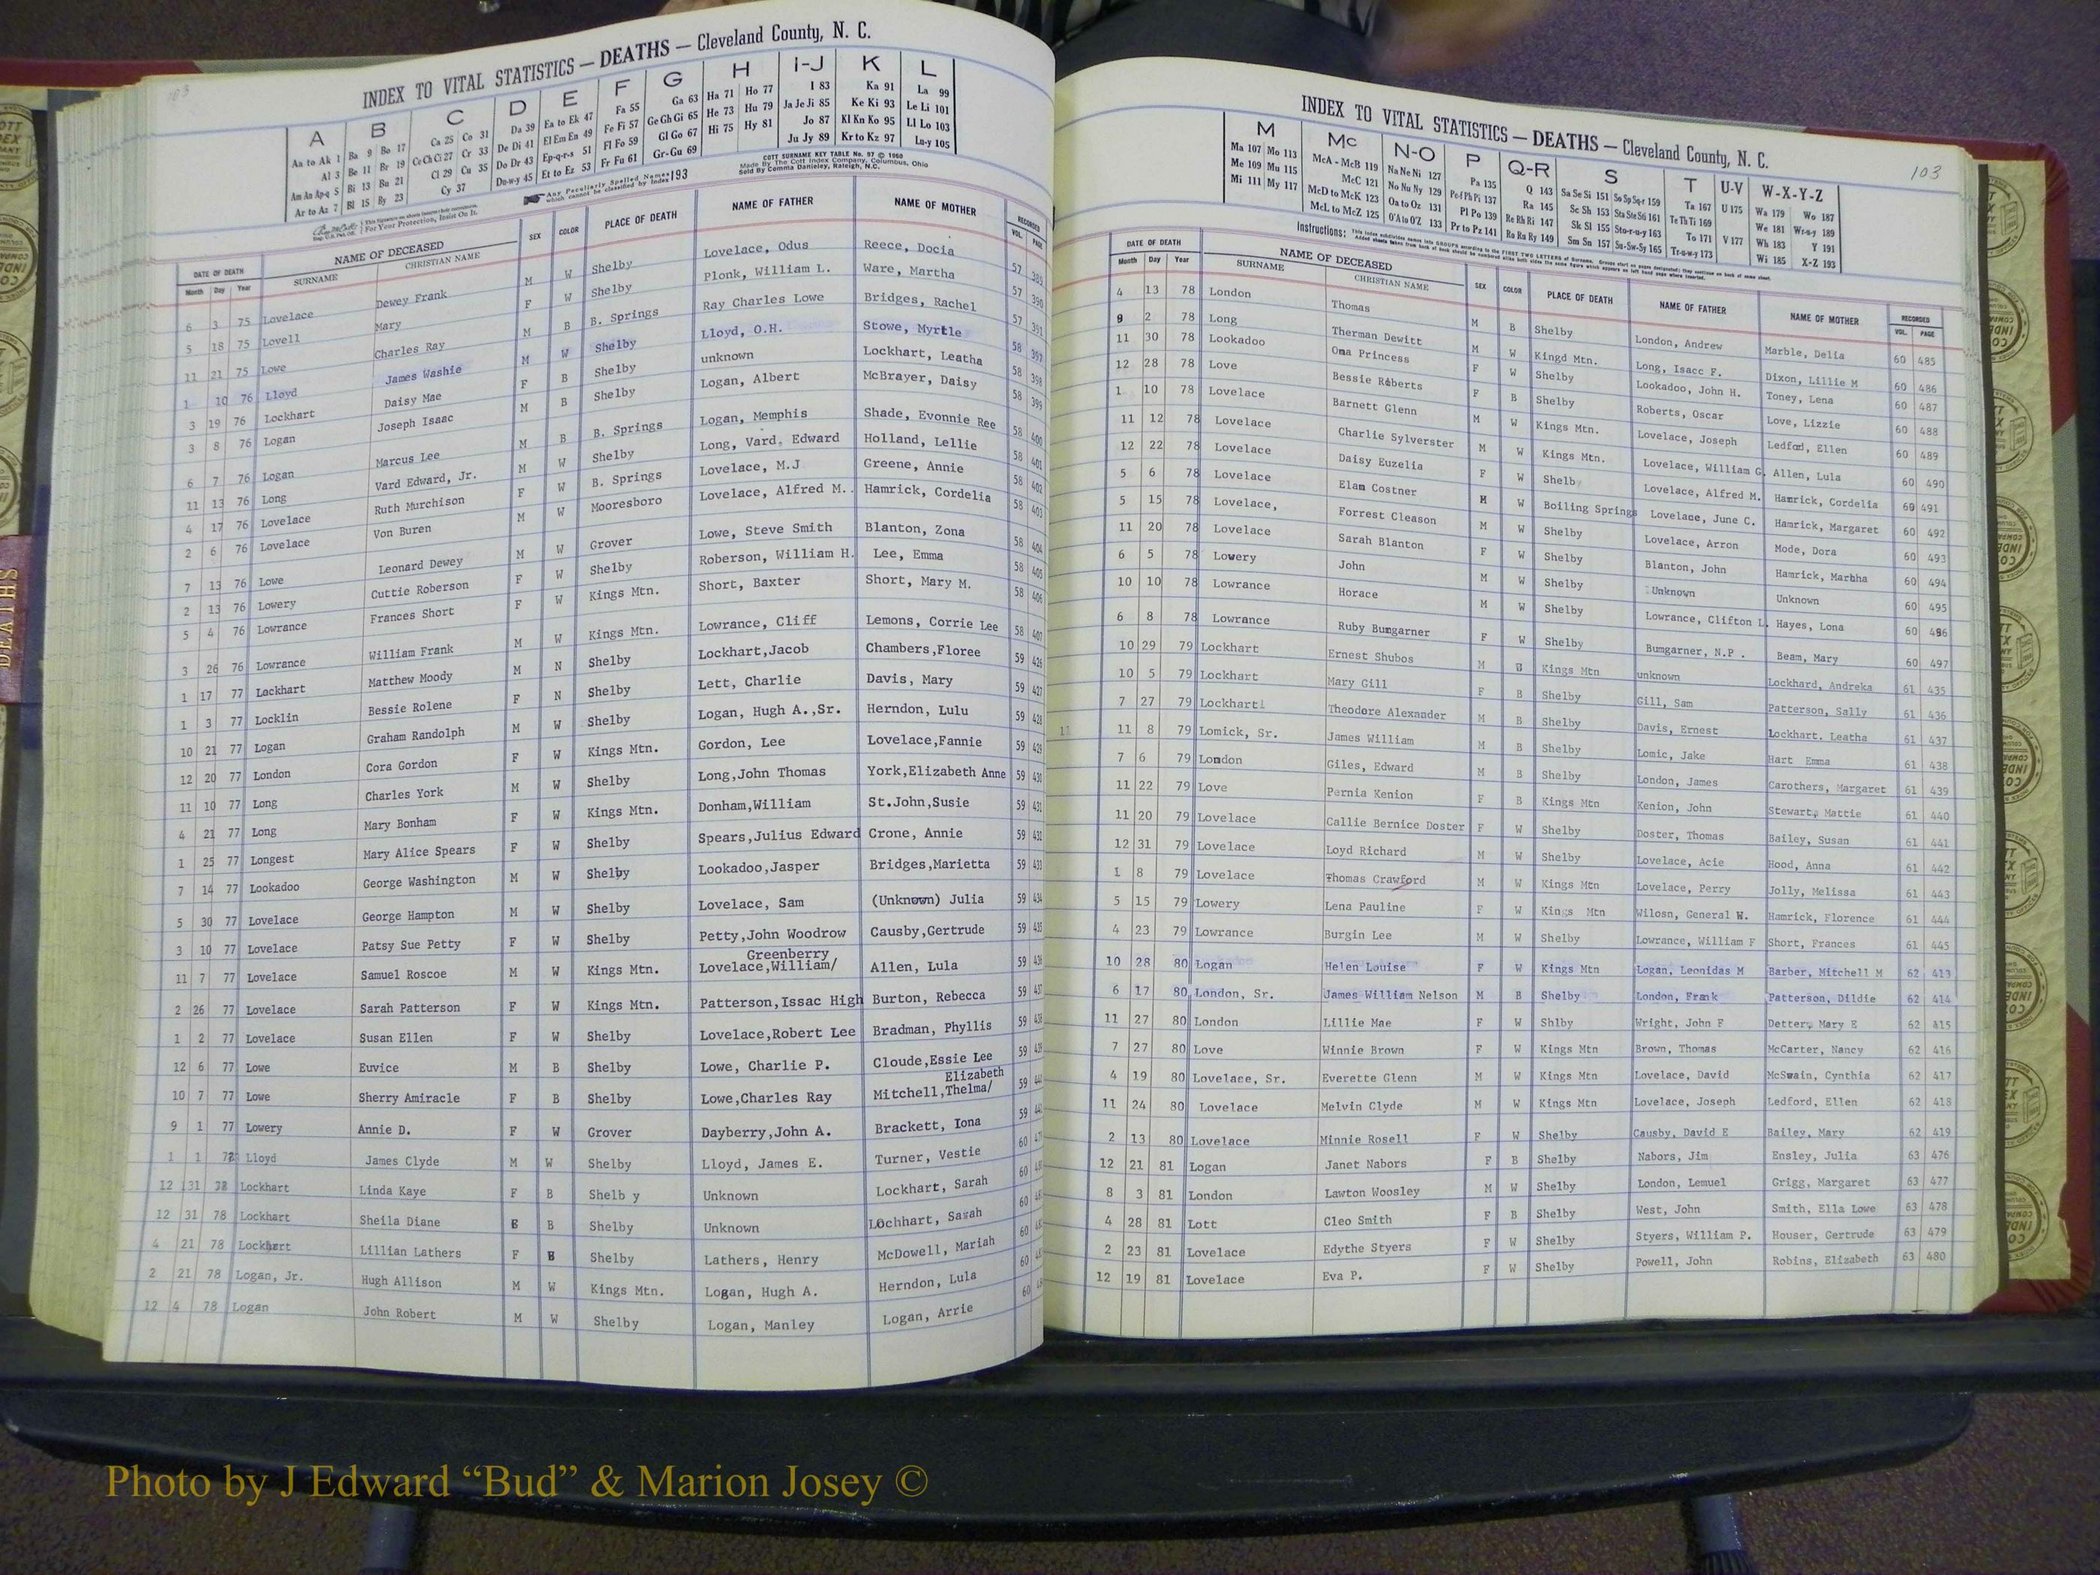 103
INDEX TO VITAL STATISTICS — DEATHS — Cleveland County, N. C.
A B C D E F G H I-J K L
Aa to Ak 1 Ba 9 Bo 17 Ca 25 Co 31 Da 39 Ea to Ek 47 Fa 55 Ga 63 Ha 71 Ho 77 I 83 Ka 91 La 99
Al 3 Be 11 Br 19 Ce Ch Ci 27 Cr 33 De Di 41 El Em En 49 Fe Fi 57 Ge Gh Gi 65 He 73 Hu 79 Ja Je Ji 85 Ke Ki 93 Le Li 101
Am An Ap-q 5 Bi 13 Bu 21 Cl 29 Cu 35 Do Dr 43 Ep-q-r-s 51 Fl Fo 59 Gl Go 67 Hi 75 Hy 81 Jo 87 Kl Kn Ko 95 Ll Lo 103
Ar to Az 7 Bl 15 By 23 Cy 37 Du-w-y 45 Et to Ez 53 Fr Fu 61 Gr-Gu 69 Ju Jy 89 Kr to Kz 97 Lu-y 105
COTT SURNAME KEY TABLE No. 97 © 1960
Made By The Cott Index Company, Columbus, Ohio
Sold By Comma Danieley, Raleigh, N.C.
Any Peculiarly Spelled Names which cannot be classified by Index 193
For Your Protection, Insist On It.
DATE OF DEATH NAME OF DECEASED SEX COLOR PLACE OF DEATH NAME OF FATHER NAME OF MOTHER RECORDED
Month Day Year SURNAME CHRISTIAN NAME VOL. PAGE
6 3 75 Lovelace Dewey Frank M W Shelby Lovelace, Odus Reece, Docia 57 389
5 18 75 Lovell Mary F W Shelby Plonk, William L. Ware, Martha 57 390
11 21 75 Lowe Charles Ray M B B. Springs Ray Charles Lowe Bridges, Rachel 57 391
1 10 76 Lloyd James Washie M W Shelby Lloyd, O.H. Stowe, Myrtle 58 397
3 19 76 Lockhart Daisy Mae F B Shelby unknown Lockhart, Leatha 58 398
3 8 76 Logan Joseph Isaac M B Shelby Logan, Albert McBrayer, Daisy 58 399
6 7 76 Logan Marcus Lee M B B. Springs Logan, Memphis Shade, Evonnie Ree 58 400
11 13 76 Long Vard Edward, Jr. M W Shelby Long, Vard. Edward Holland, Lellie 58 401
4 17 76 Lovelace Ruth Murchison F W B. Springs Lovelace, M.J Greene, Annie 58 402
2 6 76 Lovelace Von Buren M W Mooresboro Lovelace, Alfred M.. Hamrick, Cordelia 58 403
7 13 76 Lowe Leonard Dewey M W Grover Lowe, Steve Smith Blanton, Zona 58 404
2 13 76 Lowery Cuttie Roberson F W Shelby Roberson, William H. Lee, Emma 58 405
5 4 76 Lowrance Frances Short F W Kings Mtn. Short, Baxter Short, Mary M. 58 406
3 26 76 Lowrance William Frank M W Kings Mtn. Lowrance, Cliff Lemons, Corrie Lee 58 407
1 17 77 Lockhart Matthew Moody M N Shelby Lockhart,Jacob Chambers,Floree 59 426
1 3 77 Locklin Bessie Rolene F N Shelby Lett, Charlie Davis, Mary 59 427
10 21 77 Logan Graham Randolph M W Shelby Logan, Hugh A.,Sr. Herndon, Lulu 59 428
12 20 77 London Cora Gordon F W Kings Mtn. Gordon, Lee Lovelace,Fannie 59 429
11 10 77 Long Charles York M W Shelby Long,John Thomas York,Elizabeth Anne 59 430
4 21 77 Long Mary Bonham F W Kings Mtn. Donham,William St.John,Susie 59 431
1 25 77 Longest Mary Alice Spears F W Shelby Spears,Julius Edward Crone, Annie 59 432
7 14 77 Lookadoo George Washington M W Shelby Lookadoo,Jasper Bridges,Marietta 59 433
5 30 77 Lovelace George Hampton M W Shelby Lovelace, Sam (Unknown) Julia 59 434
3 10 77 Lovelace Patsy Sue Petty F W Shelby Petty,John Woodrow Causby,Gertrude 59 435
11 7 77 Lovelace Samuel Roscoe M W Kings Mtn. Lovelace,William/ Greenberry Allen, Lula 59 436
2 26 77 Lovelace Sarah Patterson F W Kings Mtn. Patterson,Issac High Burton, Rebecca 59 437
1 2 77 Lovelace Susan Ellen F W Shelby Lovelace,Robert Lee Bradman, Phyllis 59 438
12 6 77 Lowe Euvice M B Shelby Lowe, Charlie P. Cloude,Essie Lee 59 439
10 7 77 Lowe Sherry Amiracle F B Shelby Lowe,Charles Ray Mitchell,Thelma/ Elizabeth 59
9 1 77 Lowery Annie D. F W Grover Dayberry,John A. Brackett, Iona 59
1 1 78 Lloyd James Clyde M W Shelby Lloyd, James E. Turner, Vestie 60
12 31 78 Lockhart Linda Kaye F B Shelb y Unknown Lockhart, Sarah 60
12 31 78 Lockhart Sheila Diane B Shelby Unknown Lochhart, Sarah 60
4 21 78 Lockhart Lillian Lathers F B Shelby Lathers, Henry McDowell, Mariah 60
2 21 78 Logan, Jr. Hugh Allison M W Kings Mtn. Logan, Hugh A. Herndon, Lula 60
12 4 78 Logan John Robert M W Shelby Logan, Manley Logan, Arrie 60
INDEX TO VITAL STATISTICS — DEATHS — Cleveland County, N. C.
103
M Mc N-O P Q-R S T U-V W-X-Y-Z
Ma 107 Mo 113 McA - McB 119 Na Ne Ni 127 Pa 135 Q 143 Sa Se Si 151 So Sp Sq-r 159 Ta 167 U 175 Wa 179 Wo 187
Me 109 Mu 115 McC 121 No Nu Ny 129 Pe-f Ph Pi 137 Ra 145 Sc Sh 153 Sta Ste Sti 161 Te Th Ti 169 We 181 Wr-u-y 189
Mi 111 My 117 McD to McK 123 Oa to Oz 131 Pl Po 139 Re Rh Ri 147 Sk Sl 155 Sto-r-u-y 163 To 171 V 177 Wh 183 Y 191
McL to McZ 125 O'A to O'Z 133 Pr to Pz 141 Ro Ru Ry 149 Sm Sn 157 Su-Sw-Sy 165 Tr-u-w-y 173 Wi 185 X-Z 193
Instructions: This Index subdivides names into GROUPS according to the FIRST TWO LETTERS of Surname. Groups start on pages designated; they continue on back of same sheet.
Added sheets taken from back of book should be numbered alike both sides the same figure which appears on left hand page where inserted.
DATE OF DEATH NAME OF DECEASED SEX COLOR PLACE OF DEATH NAME OF FATHER NAME OF MOTHER RECORDED
Month Day Year SURNAME CHRISTIAN NAME VOL. PAGE
4 13 78 London Thomas M B Shelby London, Andrew Marble, Delia 60 485
9 2 78 Long Therman Dewitt M W Kingd Mtn. Long, Isacc F. Dixon, Lillie M 60 486
11 30 78 Lookadoo Oma Princess F W Shelby Lookadoo, John H. Toney, Lena 60 487
12 28 78 Love Bessie Roberts F B Shelby Roberts, Oscar Love, Lizzie 60 488
1 10 78 Lovelace Barnett Glenn M W Kings Mtn. Lovelace, Joseph Ledford, Ellen 60 489
11 12 78 Lovelace Charlie Sylverster M W Kings Mtn. Lovelace, William G. Allen, Lula 60 490
12 22 78 Lovelace Daisy Euzelia F W Shelby Lovelace, Alfred M. Hamrick, Cordelia 60 491
5 6 78 Lovelace Elam Costner M W Boiling Springs Lovelace, June C. Hamrick, Margaret 60 492
5 15 78 Lovelace, Forrest Cleason M W Shelby Lovelace, Arron Mode, Dora 60 493
11 20 78 Lovelace Sarah Blanton F W Shelby Blanton, John Hamrick, Marhha 60 494
6 5 78 Lowery John M W Shelby Unknown Unknown 60 495
10 10 78 Lowrance Horace M W Shelby Lowrance, Clifton L. Hayes, Lona 60 496
6 8 78 Lowrance Ruby Bumgarner F W Shelby Bumgarner, N.P . Beam, Mary 60 497
10 29 79 Lockhart Ernest Shubos M B Kings Mtn unknown Lockhard, Andreka 61 435
10 5 79 Lockhart Mary Gill F B Shelby Gill, Sam Patterson, Sally 61 436
7 27 79 Lockhart Theodore Alexander M B Shelby Davis, Ernest Lockhart. Leatha 61 437
11 8 79 Lomick, Sr. James William M B Shelby Lomic, Jake Hart Emma 61 438
7 6 79 London Giles, Edward M B Shelby London, James Carothers, Margaret 61 439
11 22 79 Love Pernia Kenion F B Kings Mtn Kenion, John Stewart, Mattie 61 440
11 20 79 Lovelace Callie Bernice Doster F W Shelby Doster, Thomas Bailey, Susan 61 441
12 31 79 Lovelace Loyd Richard M W Shelby Lovelace, Acie Hood, Anna 61 442
1 8 79 Lovelace Thomas Crawford M W Kings Mtn Lovelace, Perry Jolly, Melissa 61 443
5 15 79 Lowery Lena Pauline F W Kings Mtn Wilosn, General W. Hamrick, Florence 61 444
4 23 79 Lowrance Burgin Lee M W Shelby Lowrance, William F Short, Frances 61 445
10 28 80 Logan Helen Louise F W Kings Mtn Logan, Leonidas M Barber, Mitchell M 62 413
6 17 80 London, Sr. James William Nelson M B Shelby London, Frank Patterson, Dildie 62 414
11 27 80 London Lillie Mae F W Shlby Wright, John F Detter, Mary E 62 415
7 27 80 Love Winnie Brown F W Kings Mtn Brown, Thomas McCarter, Nancy 62 416
4 19 80 Lovelace, Sr. Everette Glenn M W Kings Mtn Lovelace, David McSwain, Cynthia 62 417
11 24 80 Lovelace Melvin Clyde M W Kings Mtn Lovelace, Joseph Ledford, Ellen 62 418
2 13 80 Lovelace Minnie Rosell F W Shelby Causby, David E Bailey, Mary 62 419
12 21 81 Logan Janet Nabors F B Shelby Nabors, Jim Ensley, Julia 63 476
8 3 81 London Lawton Woosley M W Shelby London, Lemuel Grigg, Margaret 63 477
4 28 81 Lott Cleo Smith F B Shelby West, John Smith, Ella Lowe 63 478
2 23 81 Lovelace Edythe Styers F W Shelby Styers, William P. Houser, Gertrude 63 479
12 19 81 Lovelace Eva P. F W Shelby Powell, John Robins, Elizabeth 63 480
DEATHS
Photo by J Edward “Bud” & Marion Josey ©